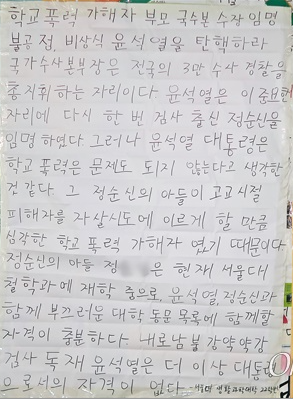 학교폭력 가해자 부모 국수본 수장 임명
불공정, 비상식 윤석열을 탄핵하라
국가수사본부장은 전국의 3만 수사 경찰을
총지휘하는 자리이다 윤석열은 이 중요한
자리에 다시 한 번 검사 출신 정순신을
임명하였다 그러나 윤석열 대통령은
학교폭력은 문제도 되지 않는다고 생각한
것 같다. 그 정순신의 아들이 고교시절
피해자를 자살시도에 이르게 할 만큼
심각한 학교폭력 가해자 였기 때문이다
정순신의 아들 정 은 현재 서울대
철학과에 재학 중으로, 윤석열, 정순신과
함께 부끄러운 대학 동문 목록에 함께할
자격이 충분하다 내로남불 강약약강
검사 독재 윤석열은 더 이상 대통령
으로서의 자격이 없다 생활과학대학 22학번